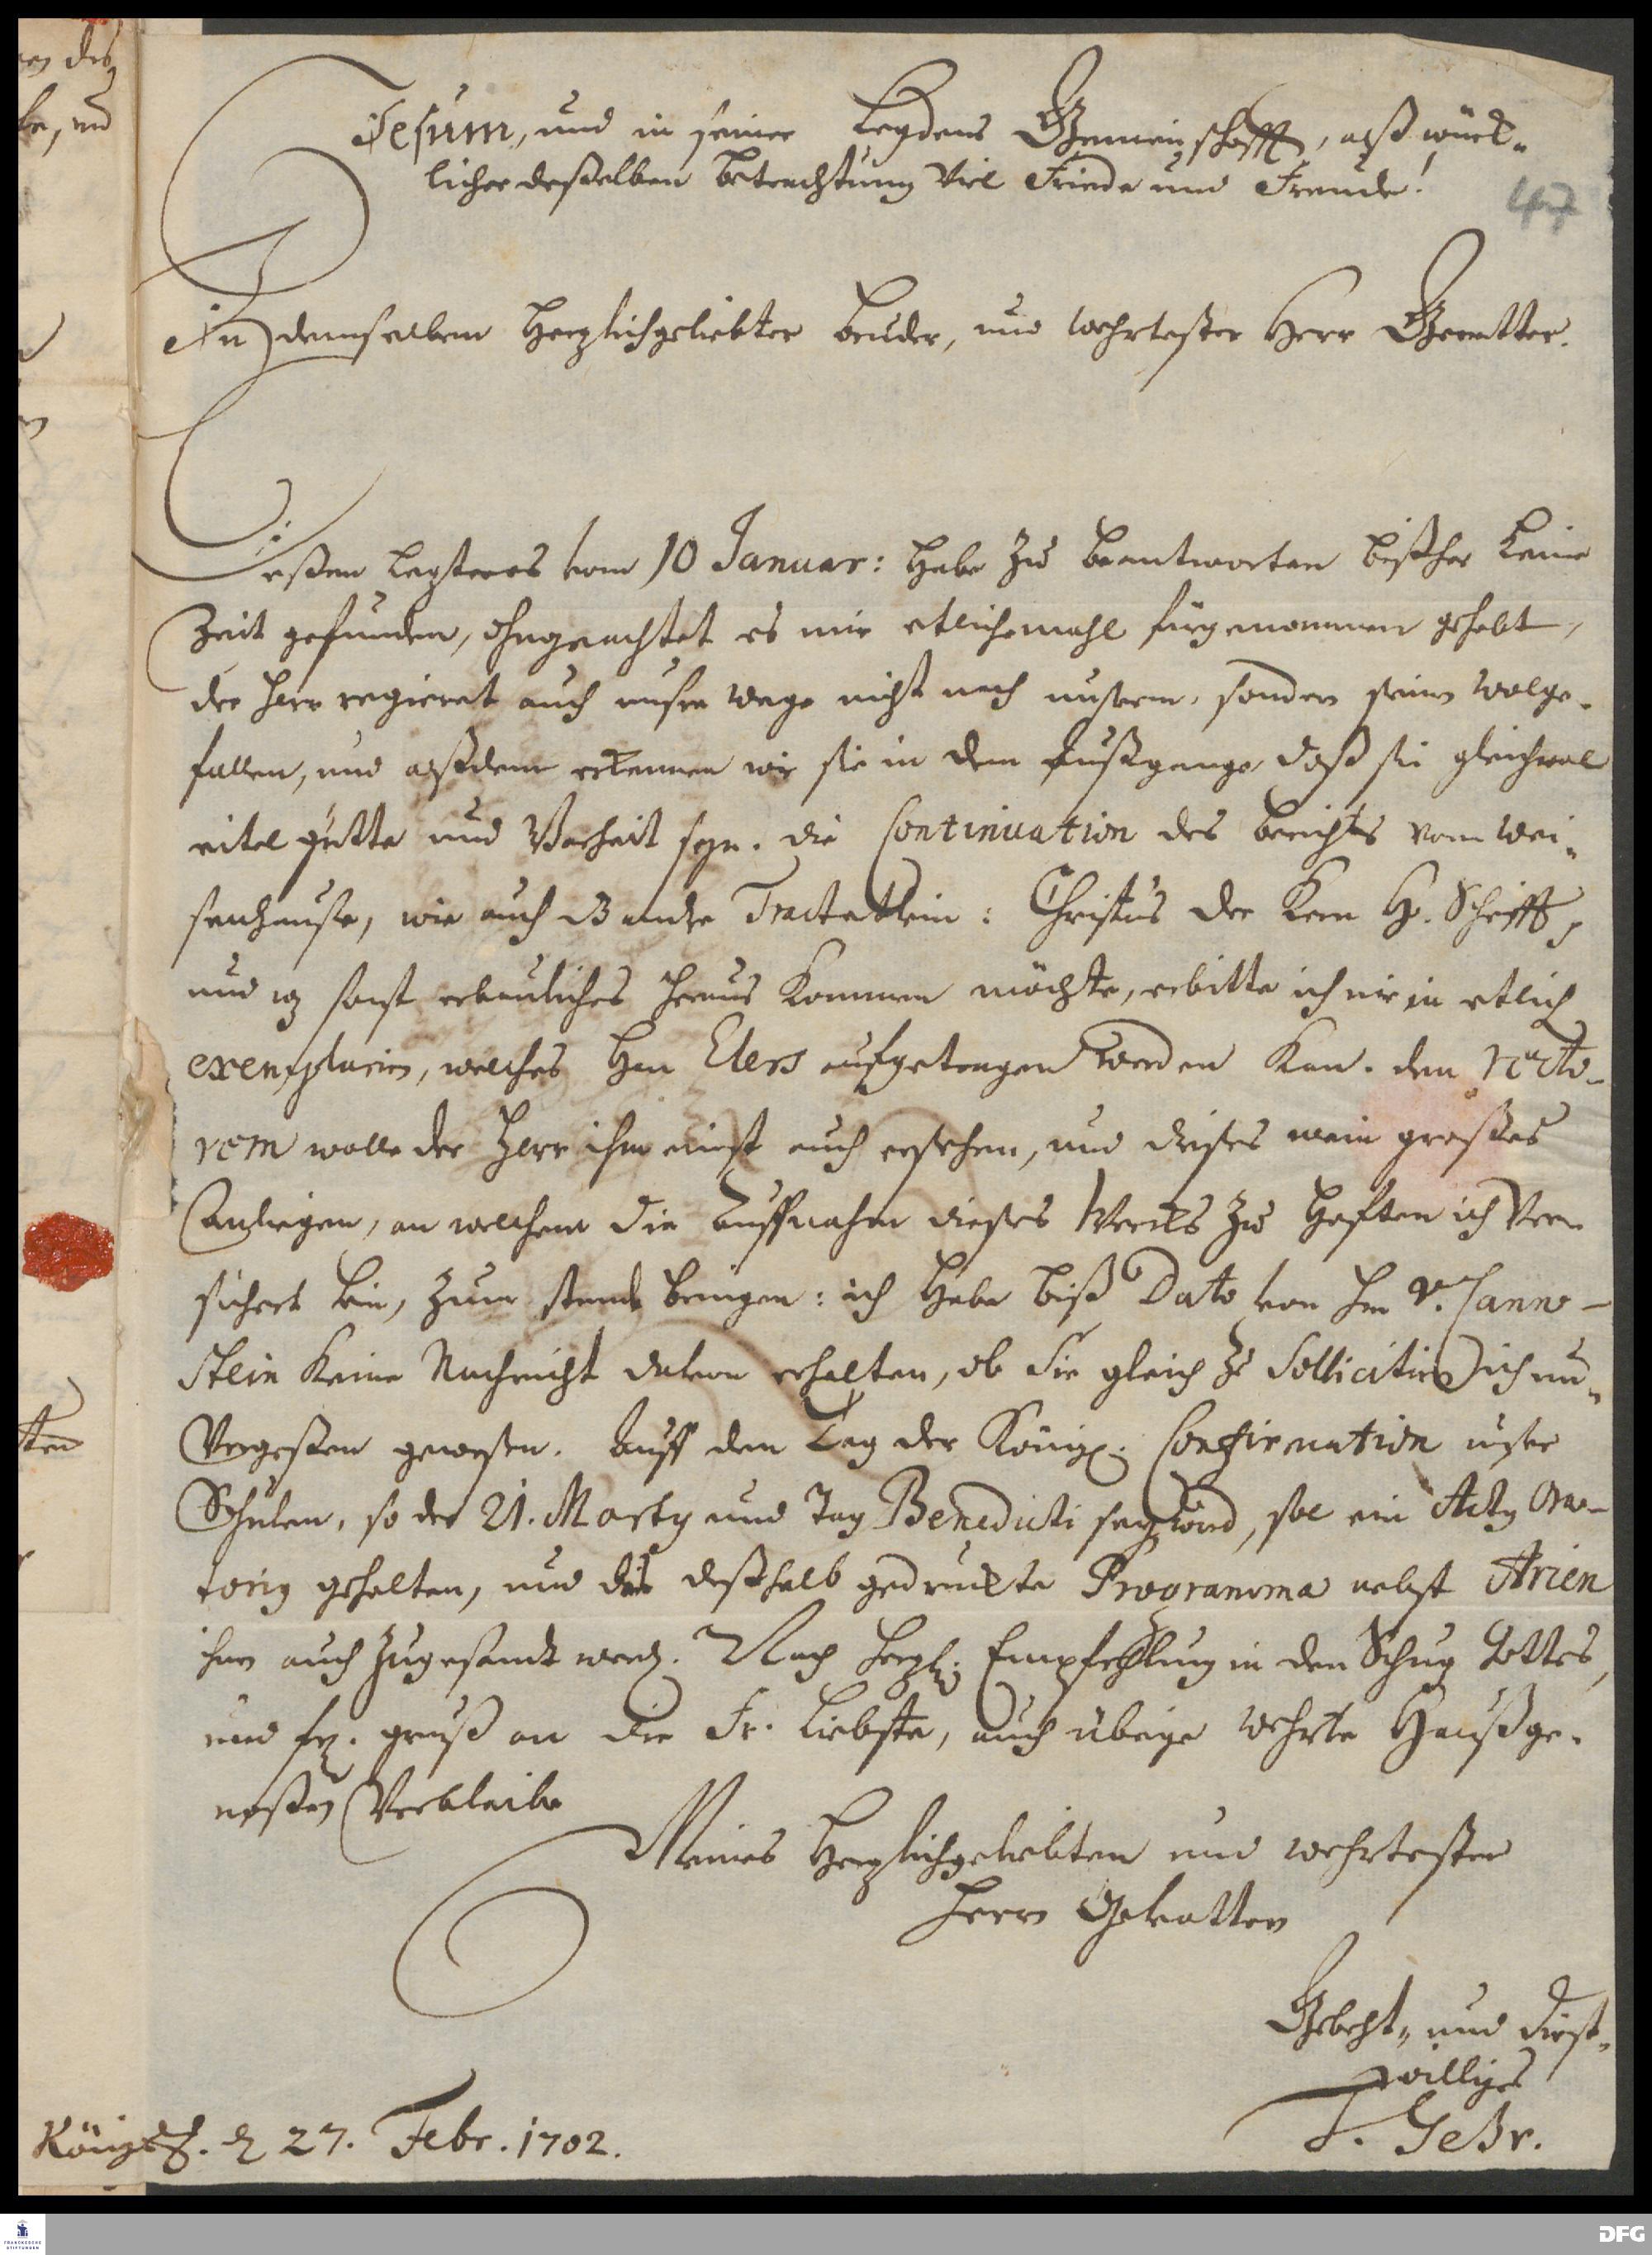 Jesum, und in seiner Leydens Gemeinschafft, alß würck-
licher deßelben Betrachtung viel Friede und Freude!
47
In demselben Hertzlichgeliebter Bruder, und wehrtester Herr Gevatter.
Deßen letzteres vom 10 Januar: habe zu beantworten bißher keine
Zeit gefunden, ohngeachtet es mir etlichemahl fürgenommen gehabt,
der Herr regieret auch unsre Wege nicht nach unserm, sondern seinen Wolge-
fallen, und alßdenn erkennen wir sie in dem Außgange, daß sie gleichwol
eitel gütte und Warheit seyn. die Continuation des Berichts vom Wei-
senhause, wie auch andre Tractätlein: Christus der Kern H. Schrifft,
und wz sonst erbauliches heraus kommen möchte, erbitte ich mir in etlich
exemplarien, welches Hrn Elers aufgetragen werden kan. den recto-
rem wolle der Herr ihm einst auch ersehen, und dieses mein großes
Anliegen, an welchem die Auffnahm dieses Wercks zu hafften ich ver-
sichert bin, zum stande bringen: ich habe biß Dato von Hn v. Canno-
stein keine Nachricht davon erhalten, ob Sie gleich zu sollicitiren ich un-
vergeßen gewesen. Auff den Tag der Königl. Confirmation unser
Schulen, so der 21. Marty und Tag Benedicti seyn wird, sol ein Actus Ora-
torius gehalten, und das deßhalb gedruckte Programma nebst Arien
ihm auch zugesandt werden. Nach hertzl. Empfehlung in den Schutz Gottes,
und fr. gruß an die Fr. Liebste, auch übrige wehrte Haußge-
noßen verbleibe
Meines Hertzlichgeliebten und wehrtesten
Herrn Gevattern
Gebeht- und dienst-
williger
T. Gehr.
Königsb. d 27. Febr. 1702.
FRANCKESCHE STIFTUNGEN
DFG